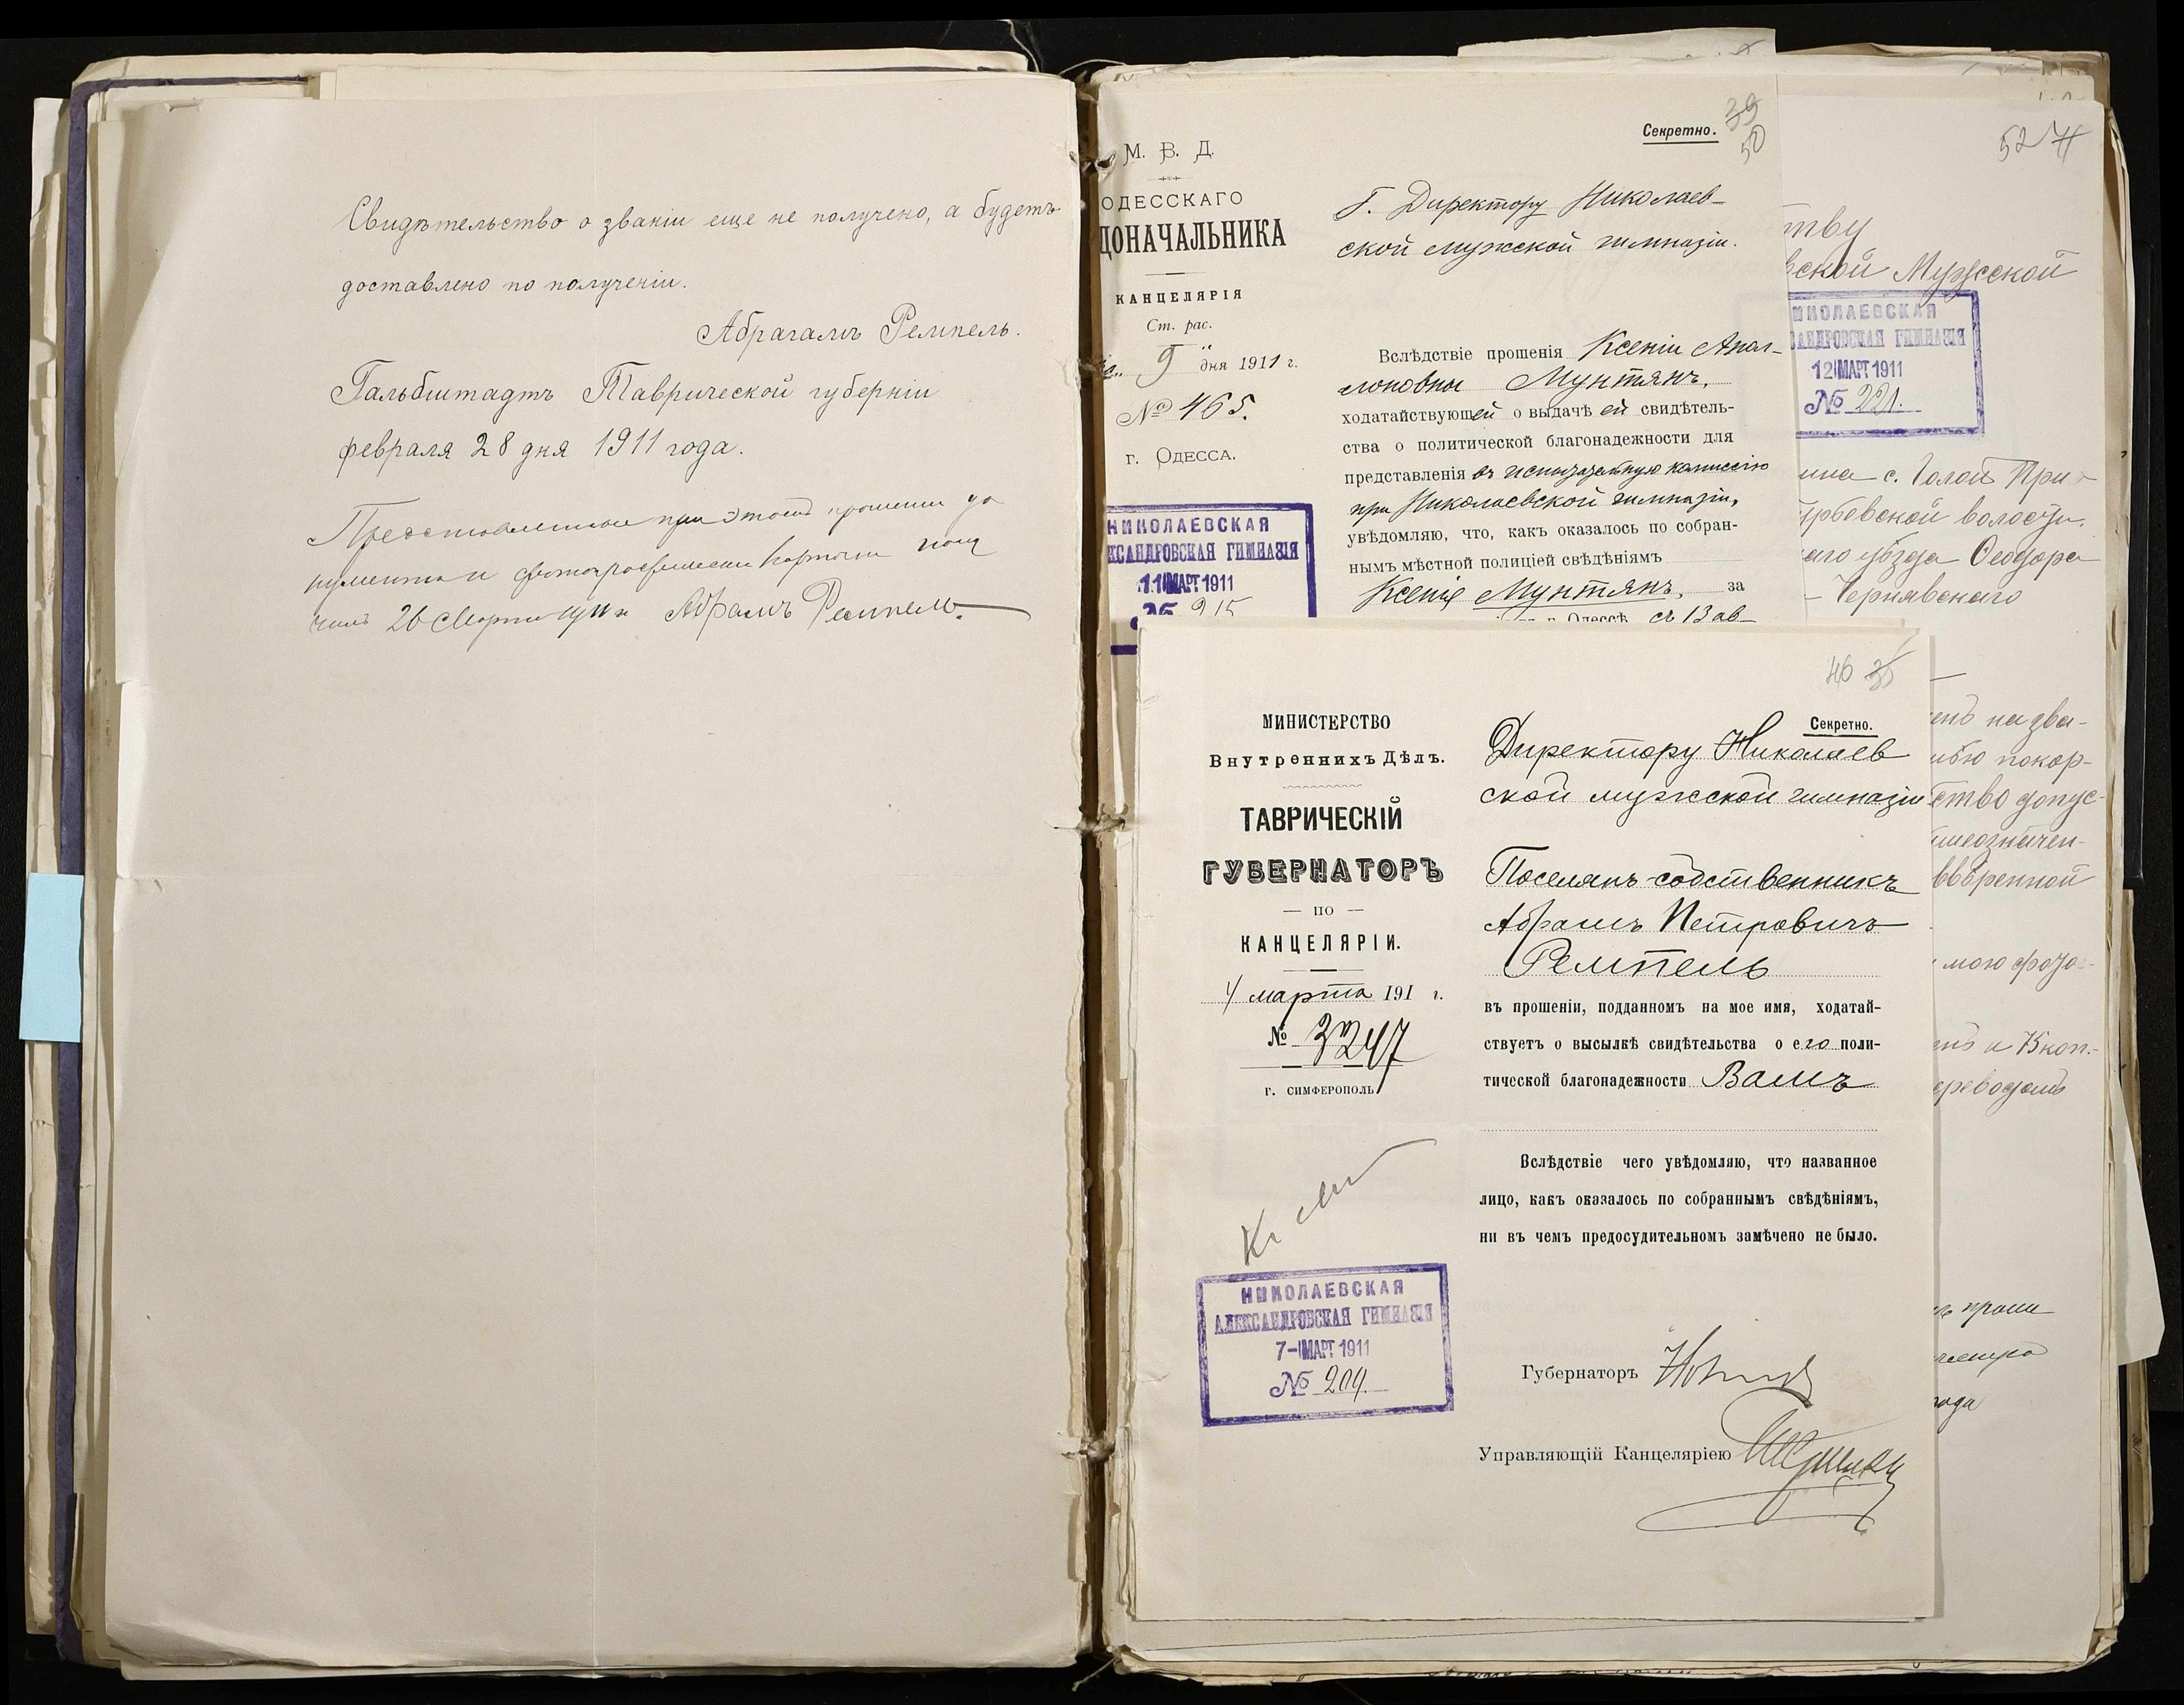 Свидѣтельство о званіи еще не получено, а будетъ
доставлено по полученіи.
Абрагамъ Ремпель.
Гальбштадтъ Таврической губерніи
февраля 28 дня 1911 года.
Представленные при этомъ прошеніи до
кументы и фотографическія карточки полу
чилъ 26 Марта 1911 г Абрамъ Ремпель.
М. В. Д.
ОДЕССКАГО
ДОНАЧАЛЬНИКА
КАНЦЕЛЯРІЯ
Ст. рас.
9 дня 1911 г.
№ 465.
г. ОДЕССА.
НИКОЛАЕВСКАЯ
КСАНДРОВСКАЯ ГИМНАЗІЯ
11 МАРТ 1911
№ 215
Секретно.
39
50
Г. Директору Николаев-
ской мужской гимназіи.
Вслѣдствіе прошенія Ксеніи Апол-
лоновны Мунтянъ,
ходатайствующей о выдачѣ ей свидѣтель-
ства о политической благонадежности для
представленія въ испытательную комиссію
при Николаевской гимназіи,
увѣдомляю, что, какъ оказалось по собран-
нымъ мѣстной полиціей свѣдѣніямъ
Ксенія Мунтянъ, за
г. Одессѣ съ 13 ав-
52
тву
вской Мужской
НИКОЛАЕВСКАЯ
АНДРОВСКАЯ ГИМНАЗІЯ
12 МАРТ 1911
№ 221.
ина с. Голой При-
рбовской волости,
аго уѣзда Ѳеодора
Чернявскаго
на зва-
покор-
ство допус-
шеозначен-
ввѣренной
мою фото-
и 75 коп.
ереводомъ
проше
года
40 35
МИНИСТЕРСТВО
Внутреннихъ Дѣлъ.
ТАВРИЧЕСКІЙ
ГУБЕРНАТОРЪ
— ПО —
КАНЦЕЛЯРІИ.
4 марта 191 г.
№ 3247
г. СИМФЕРОПОЛЬ
НИКОЛАЕВСКАЯ
АЛЕКСАНДРОВСКАЯ ГИМНАЗІЯ
7- МАРТ 1911
№ 209.
Секретно.
Директору Николаев
ской мужской гимназіи
Поселянъ-собственникъ
Абрамъ Петровичъ
Ремпель
въ прошеніи, поданномъ на мое имя, ходатай-
ствуетъ о высылкѣ свидѣтельства о его поли-
тической благонадежности Вамъ
Вслѣдствіе чего увѣдомляю, что названное
лицо, какъ оказалось по собраннымъ свѣдѣніямъ,
ни въ чемъ предосудительномъ замѣчено не было.
Губернаторъ
Управляющій Канцеляріею